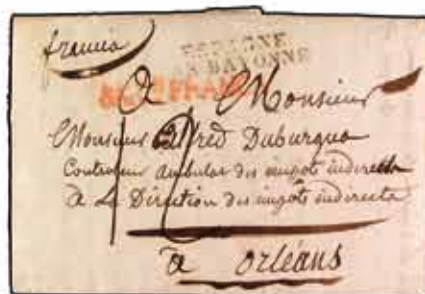 france
ESPAGNE
P. BAYONNE
A Monsieur
Monsieur Alfred Duburqua
Controleur ambulant des impôts indirects
a La Direction des impôts indirects
12
à orléans